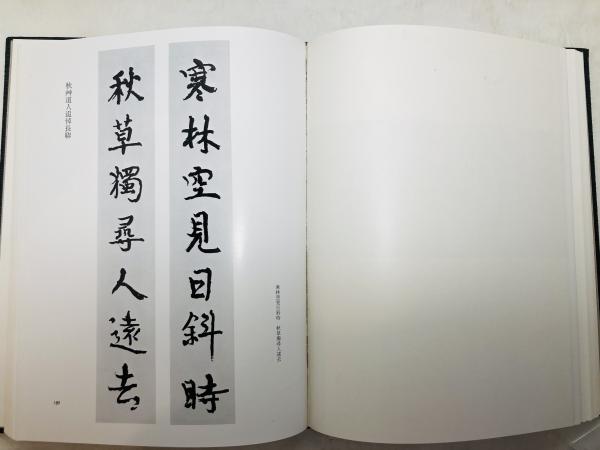 寒林空見日斜時　秋草獨尋人遠去
寒林空見日斜時
秋草獨尋人遠去
秋艸道人追悼長聯